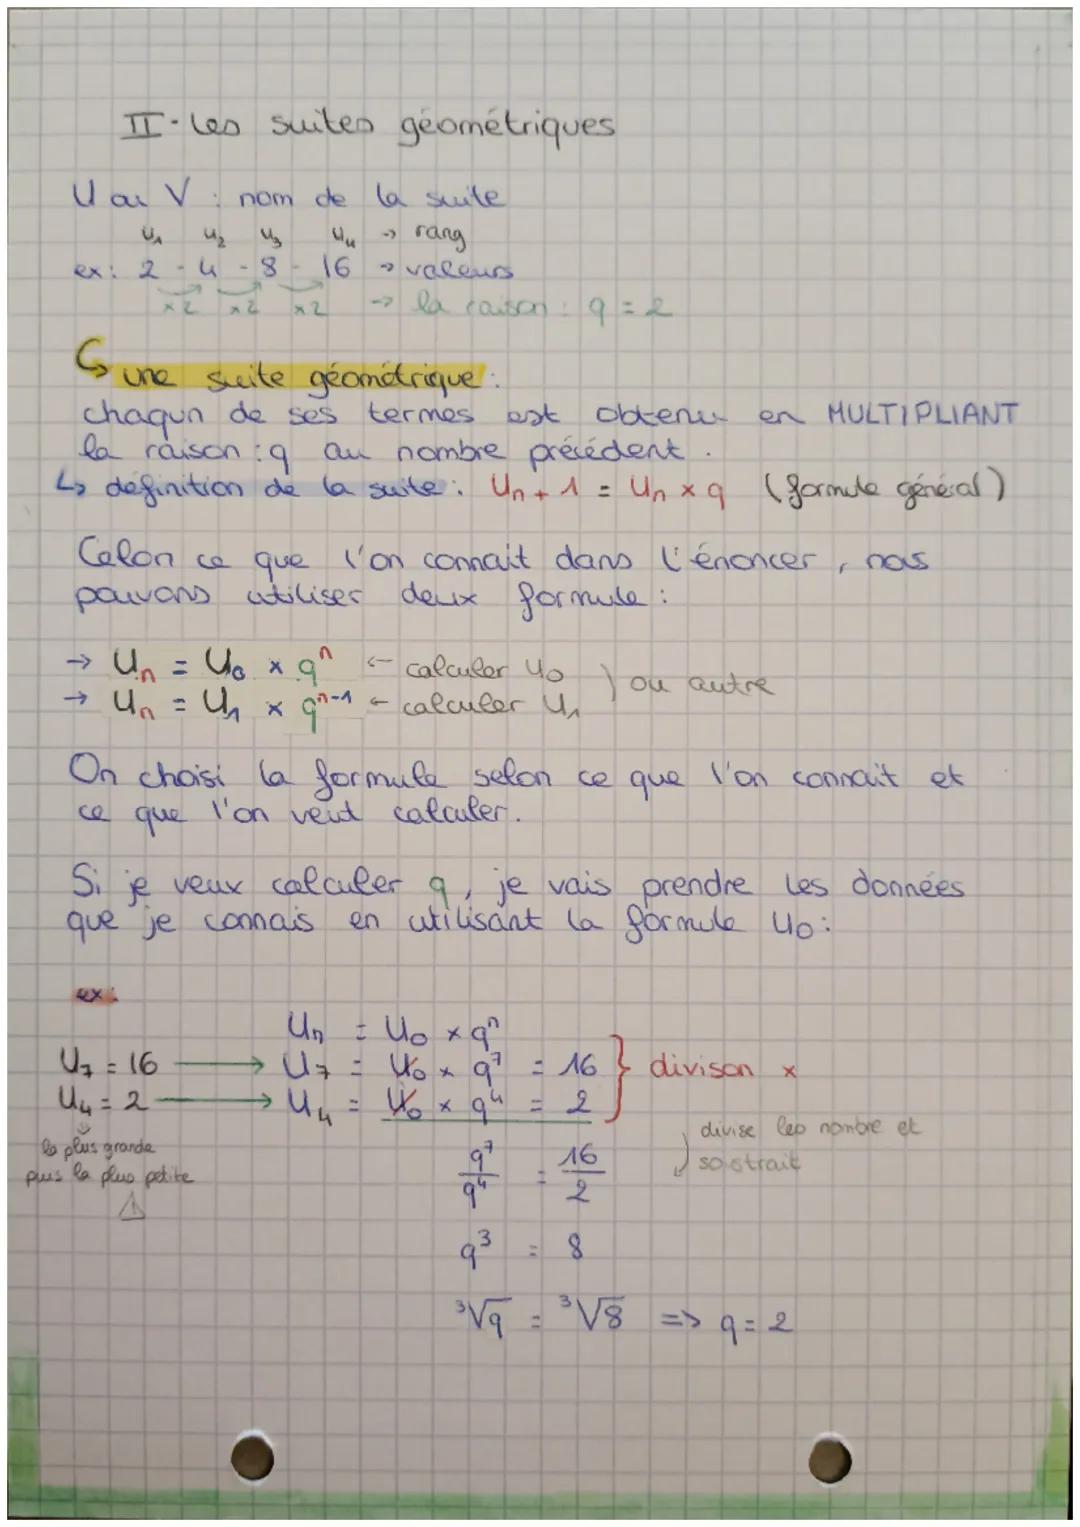 II - Les suites géométriques
U ou V : nom de la suite
U₁ U₂ U₃ U₄ → rang
ex : 2 - 4 - 8 - 16 → valeurs
x2 x2 x2 → la raison : q = 2
↳ une suite géométrique :
chaqun de ses termes est obtenu en MULTIPLIANT
la raison : q au nombre précédent.
↳ définition de la suite : Un + 1 = Un x q (formule général)
Celon ce que l'on connait dans l'énoncer, nous
pouvons utiliser deux formule :
→ Uₙ = U₀ x qⁿ ← calculer U₀ ) ou autre
→ Uₙ = U₁ x qⁿ⁻¹ ← calculer U₁
On choisi la formule selon ce que l'on connait et
ce que l'on veut calculer.
Si je veux calculer q, je vais prendre les données
que je connais en utilisant la formule U₀ :
ex :
Uₙ = U₀ x qⁿ
U₇ = 16 → U₇ = U₀ x q⁷ = 16 } divison x
U₄ = 2 → U₄ = U₀ x q⁴ = 2
la plus grande
puis la plus petite
divise les nombre et
soistrait
q⁷/q⁴ = 16/2
q³ = 8
³√q = ³√8 => q = 2